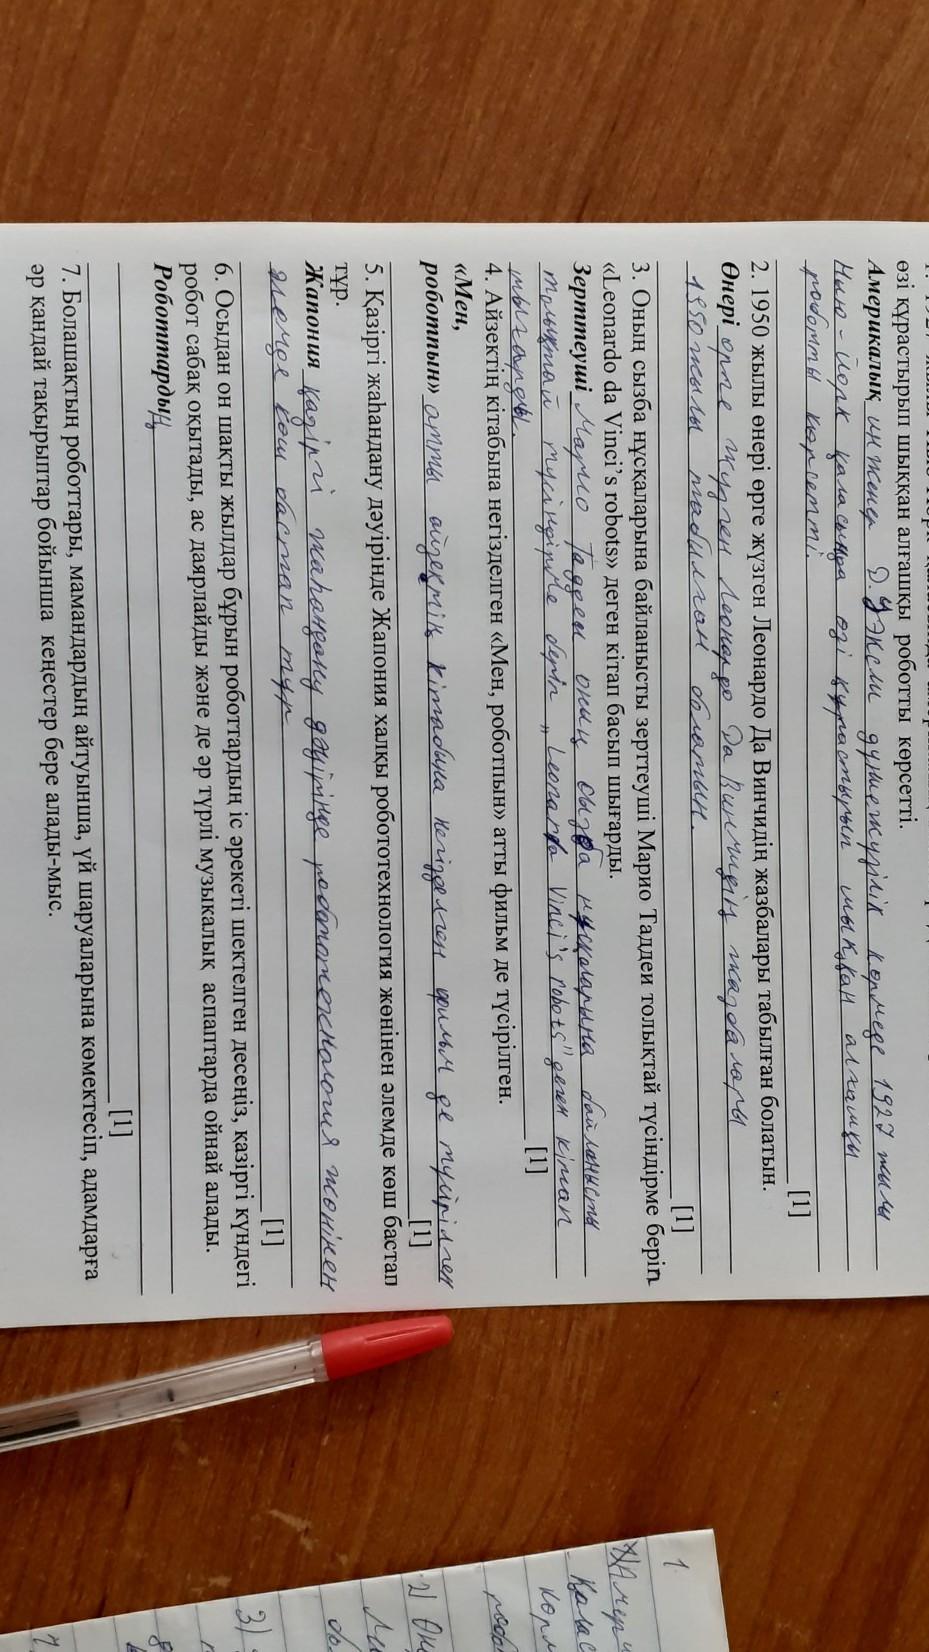 өзі құрастырып шыққан алғашқы роботты көрсетті.
Америкалық инженер Д. Уэксли дүниежүзілік көрмеде 1927 жылы
Нью-Йорк қаласында өзі құрастырып шыққан алғашқы
роботты көрсетті.
[1]
2. 1950 жылы өнері өрге жүзген Леонардо Да Винчидің жазбалары табылған болатын.
Өнері өрге жүзген Леонардо Да Винчидің жазбалары
1950 жылы табылған болатын.
[1]
3. Оның сызба нұсқаларына байланысты зерттеуші Марио Таддеи толықтай түсіндірме беріп
«Leonardo da Vinci's robots» деген кітап басып шығарды.
Зерттеуші Марио Таддеи оның сызба нұсқаларына байланысты
толықтай түсіндірме беріп „Leonarda Vinci's robots" деген кітап
шығарды.
[1]
4. Айзектің кітабына негізделген «Мен, роботпын» атты фильм де түсірілген.
«Мен,
роботпын» атты айзектің кітабына негізделген фильм де түсірілген
[1]
5. Қазіргі жаһандану дәуірінде Жапония халқы робототехнология жөнінен әлемде көш бастап
тұр.
Жапония қазіргі жаһандану дәуірінде робототехнология жөнінен
әлемде көш бастап тұр
[1]
6. Осыдан он шақты жылдар бұрын роботтардың іс әрекеті шектелген десеңіз, қазіргі күндегі
робот сабақ оқытады, ас даярлайды және де әр түрлі музыкалық аспаптарда ойнай алады.
Роботтардың
[1]
7. Болашақтың роботтары, мамандардың айтуынша, үй шаруаларына көмектесіп, адамдарға
әр қандай тақырыптар бойынша кеңестер бере алады-мыс.
1.
2)
3)